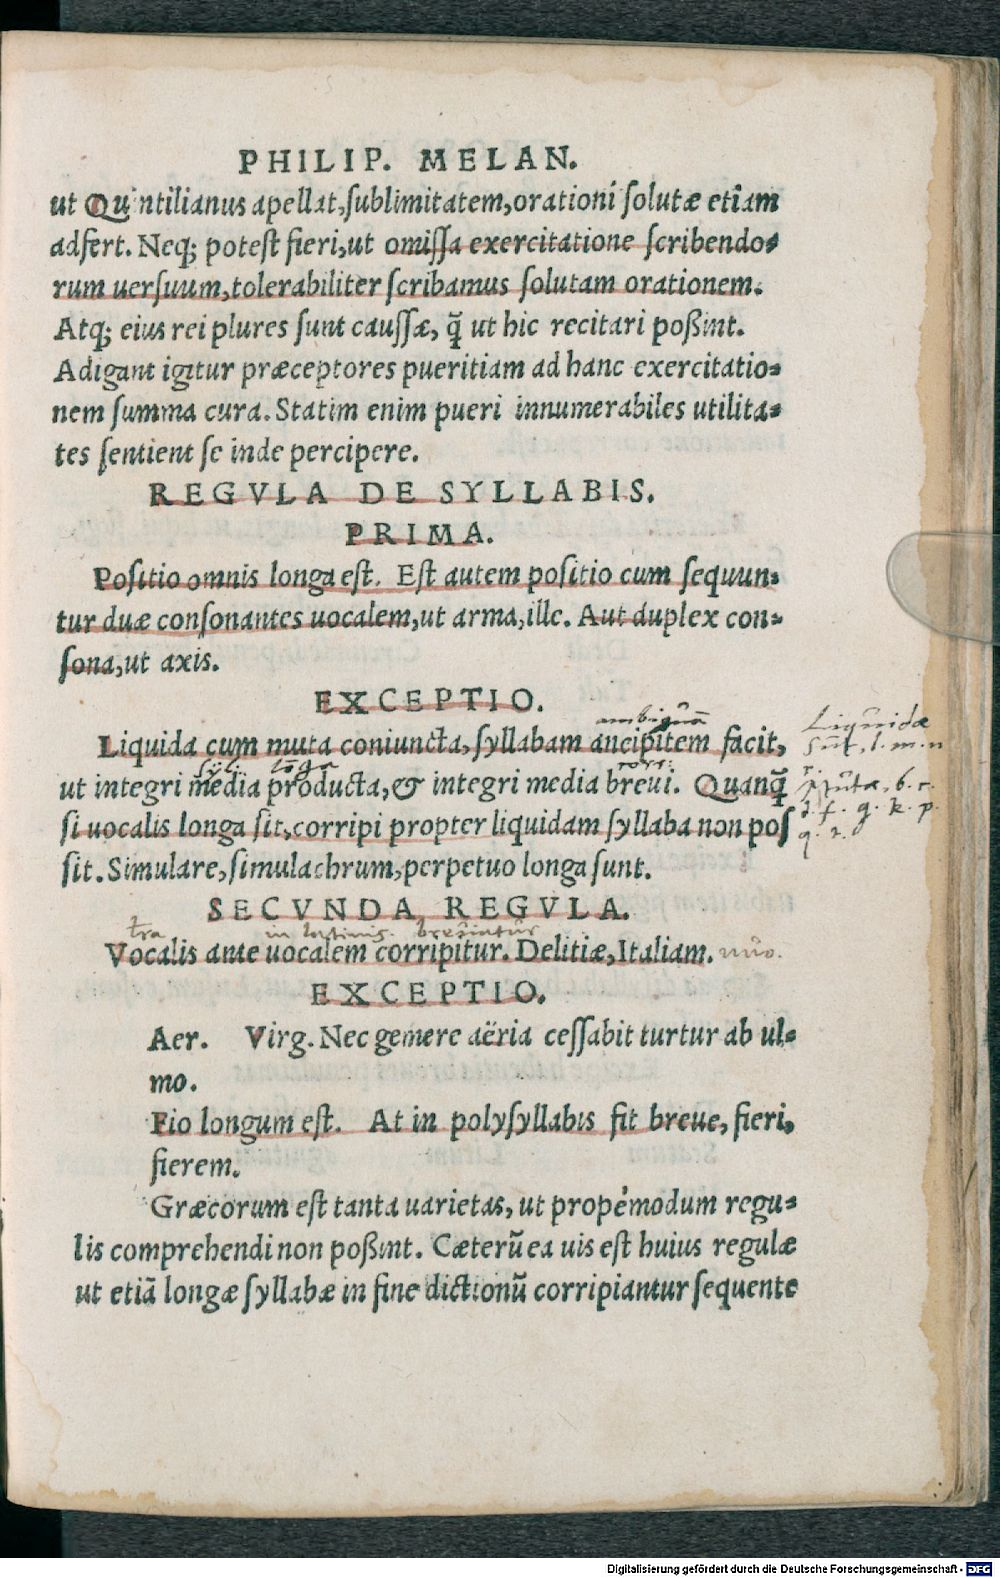 PHILIP. MELAN.
ut Quintilianus apellat, sublimitatem, orationi solutæ etiam
adfert. Neq; potest fieri, ut omissa exercitatione scribendo-
rum uersuum, tolerabiliter scribamus solutam orationem.
Atq; eius rei plures sunt caussæ, q̃ ut hic recitari poßint.
Adigant igitur præceptores pueritiam ad hanc exercitatio-
nem summa cura. Statim enim pueri innumerabiles utilita-
tes sentient se inde percipere.
REGVLA DE SYLLABIS.
PRIMA.
Positio omnis longa est. Est autem positio cum sequun-
tur duæ consonantes uocalem, ut arma, ille. Aut duplex con-
sona, ut axis.
EXCEPTIO.
ambiguã
Liquida cum muta coniuncta, syllabam ancipitem facit,
Liquidæ
sũt, l. m. n
ut integri media producta, & integri media breui. Quanq̃
si uocalis longa sit, corripi propter liquidam syllaba non pos
sit. Simulare, simulachrum, perpetuo longa sunt.
SECVNDA REGVLA.
in latinis. breuiatur
Vocalis ante uocalem corripitur. Delitiæ, Italiam.
EXCEPTIO.
Aer. Virg. Nec gemere aëria cessabit turtur ab ul-
mo.
Fio longum est. At in polysyllabis fit breue, fieri,
fierem.
Græcorum est tanta uarietas, ut propémodum regu-
lis comprehendi non poßint. Cæterũ ea uis est huius regulæ
ut etiã longæ syllabæ in fine dictionũ corripiantur sequente
Digitalisierung gefördert durch die Deutsche Forschungsgemeinschaft - DFG